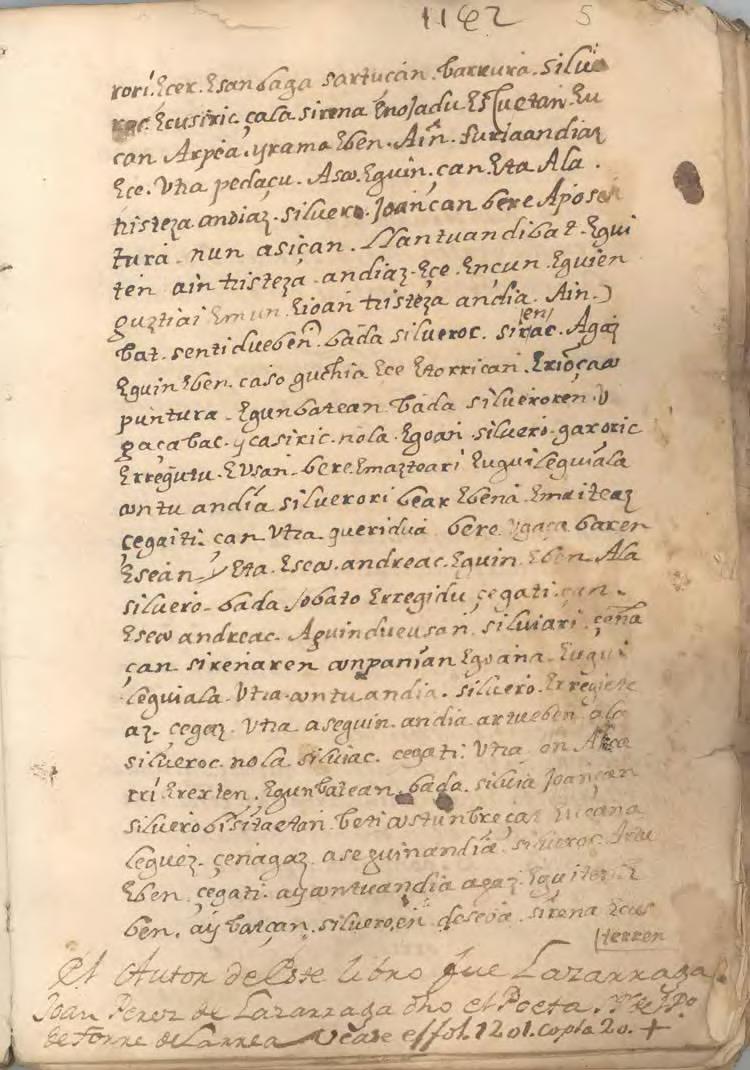 1142 5
rori. Ecer. Esan baga sartucan. barrura. silue
roc Ecusiric. çala sirena Enojadu Escuetan. Eu
can Arpea. yrama Eben. Ain. furiaandiaz
Ece. Vtra pedaçu. Asco. Eguin. çan. Eta Ala.
tristeza. andiaz. siluero. joançan bere Aposen
tura. nun asiçan. Llantuandibat. Egui
ten ain tristeza. andiaz. Ece. Ençun. Eguien
guztiai Emun. Eioan tristeza andia. Ain.
bat. sentidueben. bada silueroc. sirenac. Agaz
Eguin Eben. caso guchia Ece Etorrican. Erioçaco
puntura. Egunbatean. bada silueroren. V
gaçabac. ycasiric. nola. Egoan. siluero. gaxoric
Erregutu. Eusan. bere. Emazteari Euguileguiala
contu andia siluerori bear Ebena Emaiteaz
cegaiti. can Vtra queridua. bere. Vgaça baren
Esean. Eta. Esco. andreac. Eguin Eben Ala
siluero. bada. jobato Erregidu. cegati. can.
Esco andreac. Aguindueusan. siluiari. ceña
çan. sirenaren conpanian Egoana. Eugui
leguiala. Vtra. contu andia. siluero. Erregiete
az. cegaz. Vtra aseguin. andia artueben. ala
silueroc. nola siluiac. cegati. Vtra on Arçe
rri Erexten. Egunbatean. bada. siluia joançan
siluero bisitaetan. beti costunbreçat Euçana
leguez. ceñagaz. aseguinandia. silueroc. Artu
Eben. cegati. ay contuandia agaz. Eguiten E
ben. ay batçan. siluero, en deseoa. sirena Ecus
terren
El Autor de Este libro fue Lazarraga.
Joan Perez de Lazarraga dho el Poeta. Sr de la To.
de Torre de Larrea Vease el fol. 1201. copla 20. +